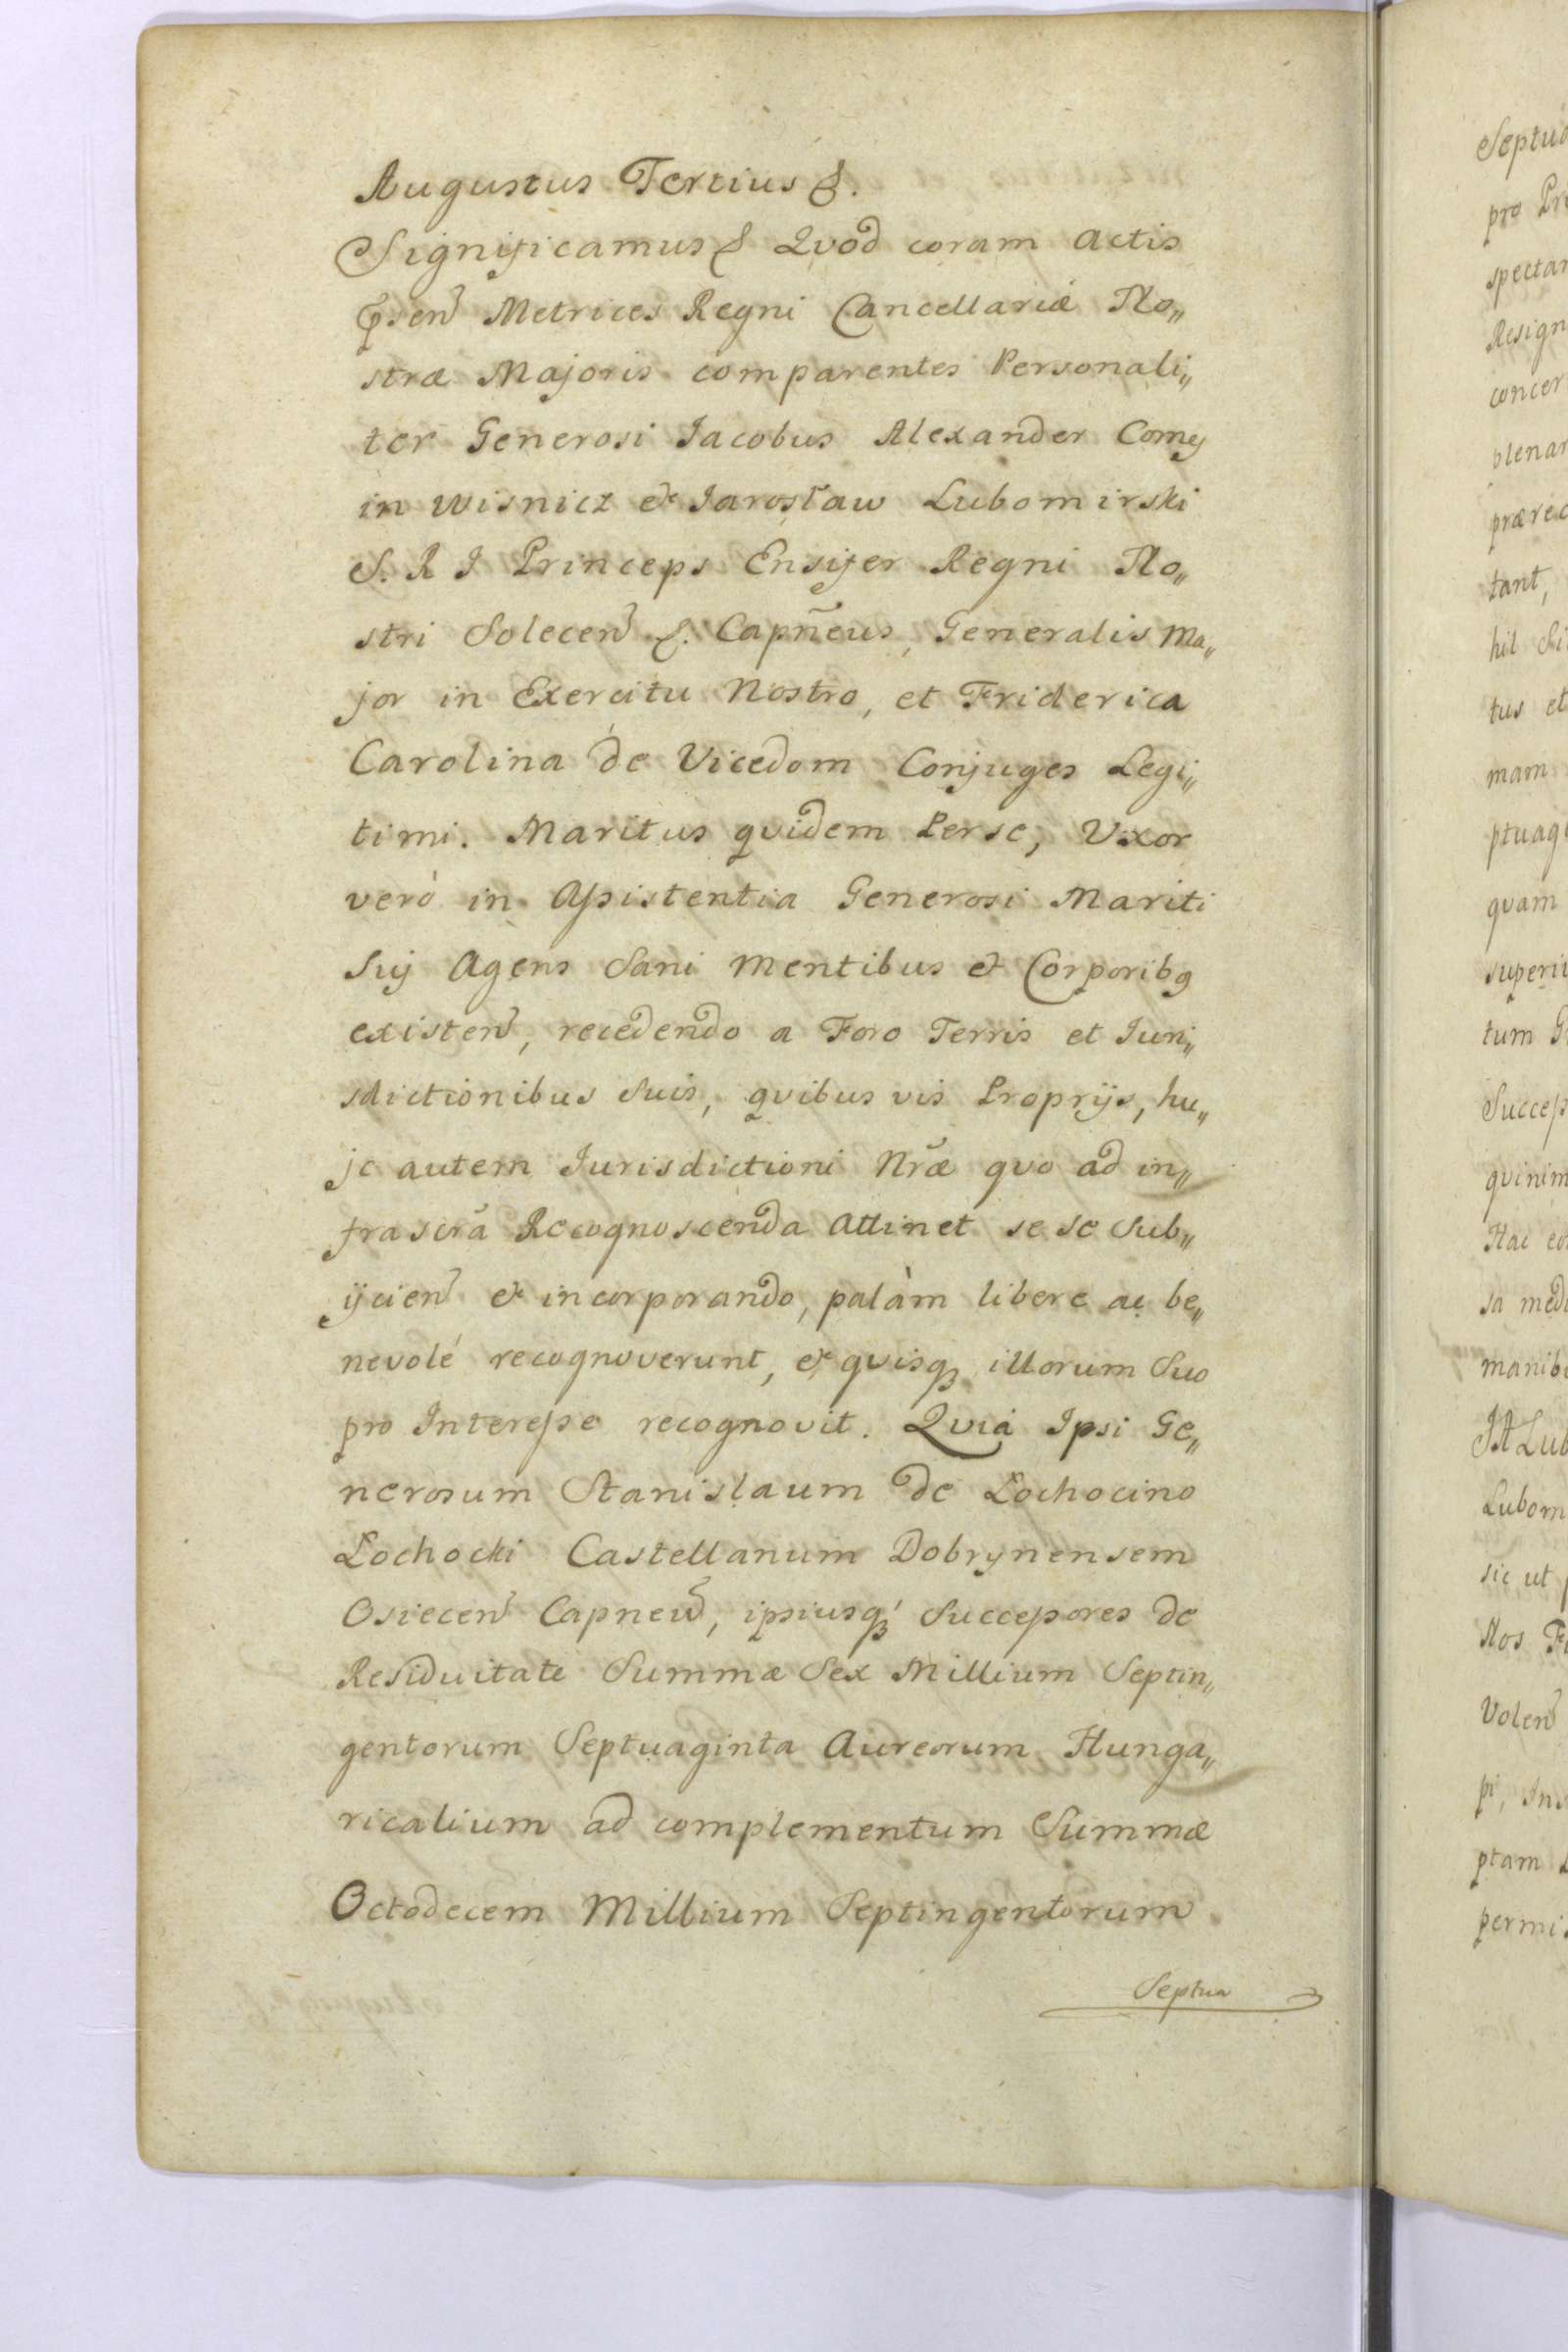 Augustus Tertius &.
Significamus & Qvod coram actis
p̄sen̄ Metrices Regni Cancellariæ No„
stræ Majoris comparentes Personali„
ter Generosi Iacobus Alexander Comes
in Wisnicz & Iarosław Lubomirski
S. R I Princeps Ensifer Regni No„
stri Solecen̄ &. Capn̄eus, Generalis Ma„
jor in Exercitu Nostro, et Friderica
Carolina de Vicedom Conjuges Legi„
timi. Maritus qvidem Per se, Uxor
verò in Assistentia Generosi Mariti
Sui Agens Sani Mentibus & Corporibq
existen̄, recedendo a Foro Terris et Iuri„
sdictionibus Suis, qvibus vis Proprijs, hu„
jc autem Iurisdictioni Nræ̃ qvo ad in„
frascrã Recognoscenda attinet se se Sub„
ijcien̄ & incorporando, palàm libere ac be„
nevolé recognoverunt, & qvisq₃ illorum Suo
pro Interesse recognovit. Qvia Ipsi Ge„
nerosum Stanislaum de Łochocino
Łochocki Castellanum Dobrynensem
Osiecen̄ Capneu̅, ipsiusq₃́ Successores de
Residuitate Summæ Sex Millium Septin„
gentorum Septuaginta Aureorum Hunga„
ricalium ad complementum Summæ
Octodecem Millium Septingentorum
Septua
Septua
pro Pr
spectan
Resign
concer
plenar
prærec
tant,
hil Si
tus et
mam
ptuag
qvam
superi
tum G
Success
qvinim
Hac eo
sa medi
manib
JALub
Lubom
sic ut p
Nos F
Volen̄
pi, Ins
ptam
permis